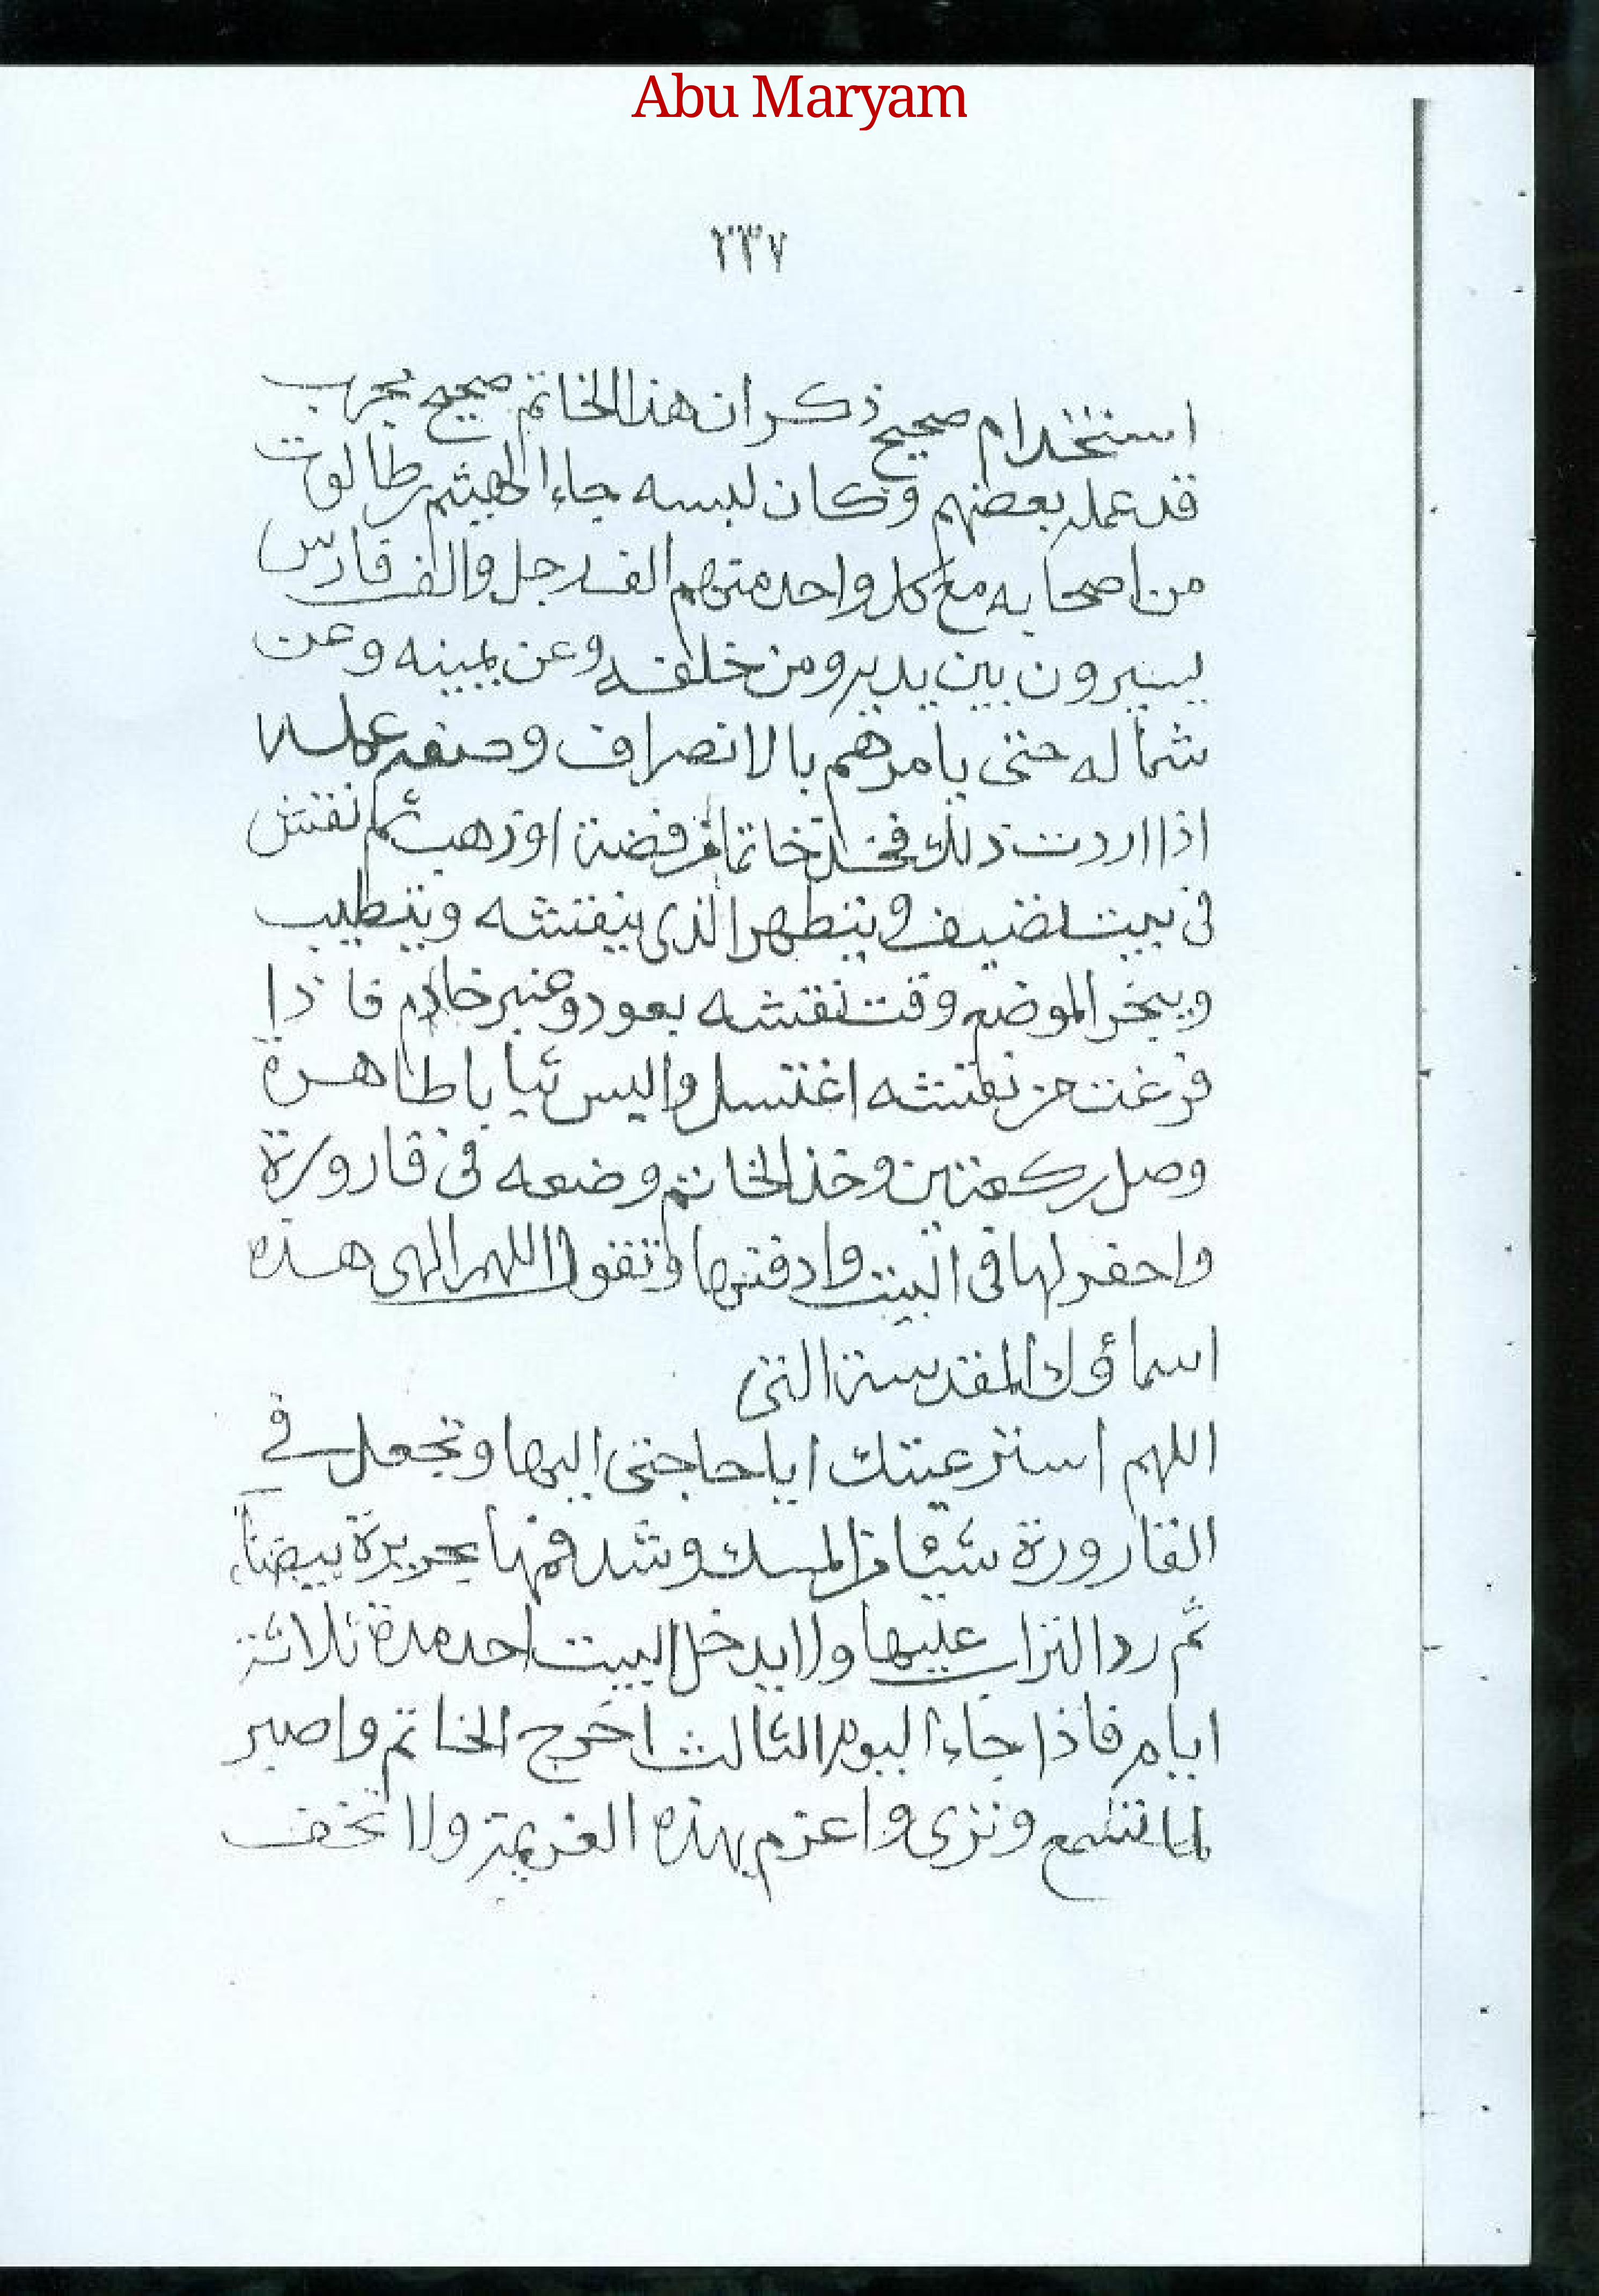 Abu Maryam
٢٣٧
استخدام صحيح ذكر ان هذا الخاتم صحيح مجرب
قد عمله بعضهم وكان لبسه جاء الهيثم وطالوت
من اصحابه مع كل واحد منهم الف رجل والف فارس
يسيرون بين يديه ومن خلفه وعن يمينه وعن
شماله حتى يامرهم بالانصراف وصفة عمله
اذا اردت ذلك فخذ خاتما من فضة او ذهب ثم نقش
فى بيت نضيف ويتطهر الذى ينقشه ويتطيب
ويبخر الموضع وقت نقشه بعود وعنبر خام فاذا
فرغت من نقشه اغتسل والبس ثيابا طاهرة
وصل ركعتين وخذ الخاتم وضعه فى قارورة
واحفر لها فى البيت وادفنها وتقول اللهم الهى هذه
اسماؤك المقدسة التى
اللهم استرعيتك اياحاجتى اليها وتجعل في
القارورة شيئا من المسك وشد فمها بحريرة بيضاء
ثم رد التراب عليها ولا يدخل البيت احد مدة ثلاثة
ايام فاذا جاء اليوم الثالث اخرج الخاتم واصبر
لما تسمع وترى واعزم بهذه العزيمة ولا تخف